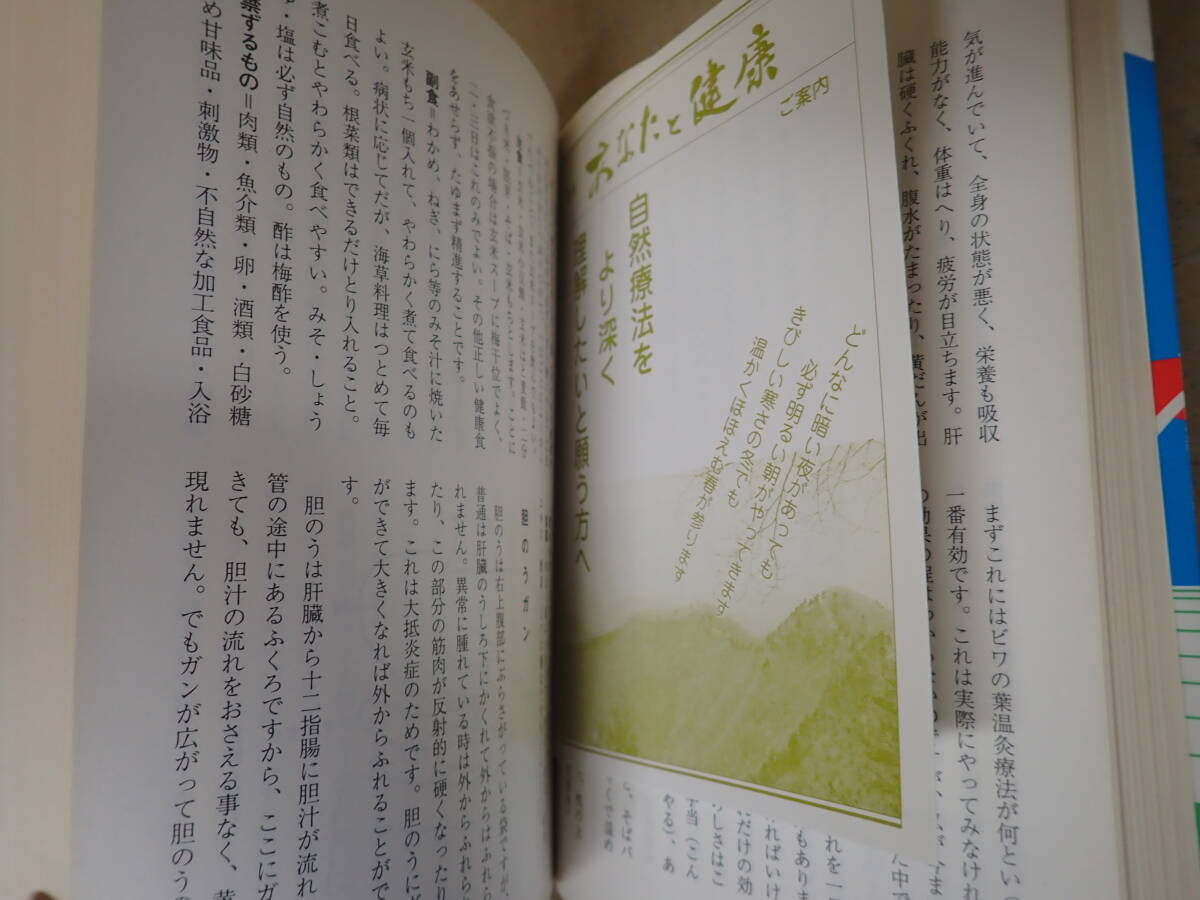 気が進んでいて、全身の状態が悪く、栄養も吸収
能力がなく、体重はへり、疲労が目立ちます。肝
臓は硬くふくれ、腹水がたまったり、黄だんが出
まずこれにはビワの葉温灸療法が何といっ
一番有効です。これは実際にやってみなけれ
あなたと健康
ご案内
自然療法を
より深く
理解したいと願う方へ
どんなに暗い夜があっても
必ず明るい朝がやってきます
きびしい寒さの冬でも
温かくほほえむ春が参ります
食欲不振の場合は玄米スープに梅干位でよく、
二・三日はこれのみでよい。その他正しい健康食
をあせらず、たゆまず精進することです。
副食＝わかめ、ねぎ、にら等のみそ汁に焼いた
玄米もち一個入れて、やわらかく煮て食べるのも
よい。病状に応じてだが、海草料理はつとめて毎
日食べる。根菜類はできるだけとり入れること。
煮こむとやわらかく食べやすい。みそ・しょう
・塩は必ず自然のもの。酢は梅酢を使う。
禁ずるもの＝肉類・魚介類・卵・酒類・白砂糖
め甘味品・刺激物・不自然な加工食品・入浴
胆のうガン
胆のうは右上腹部にぶらさがっている袋ですが、
普通は肝臓のうしろ下にかくれて外からはふれら
れません。異常に腫れている時は外からふれられ
たり、この部分の筋肉が反射的に硬くなったり
ます。これは大抵炎症のためです。胆のうにガ
ができて大きくなれば外からふれることがで
す。
胆のうは肝臓から十二指腸に胆汁が流れ
管の途中にあるふくろですから、ここにガ
きても、胆汁の流れをおさえる事なく、黄
現れません。でもガンが広がって胆のうの